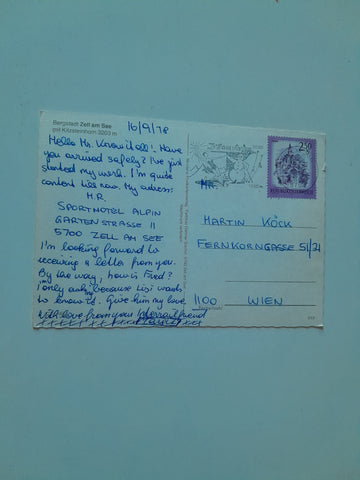 Bergstadt Zell am See
mit Kitzsteinhorn 3203 m
16/9/78
Hello Mr. Know it all! Have
you arrived safely? I've just
started my work. I'm quite
content till now. My address:
H.R.
SPORTHOTEL ALPIN
GARTENSTRASSE 11
5700 ZELL AM SEE
I'm looking forward to
receiving a letter from you.
By the way, how is Fred?
I only ask because Lisi wants
to know it. Give him my love,
With love from your
2.50
MARTIN KÖCK
FERNKORNGASSE 51/21
1100 WIEN